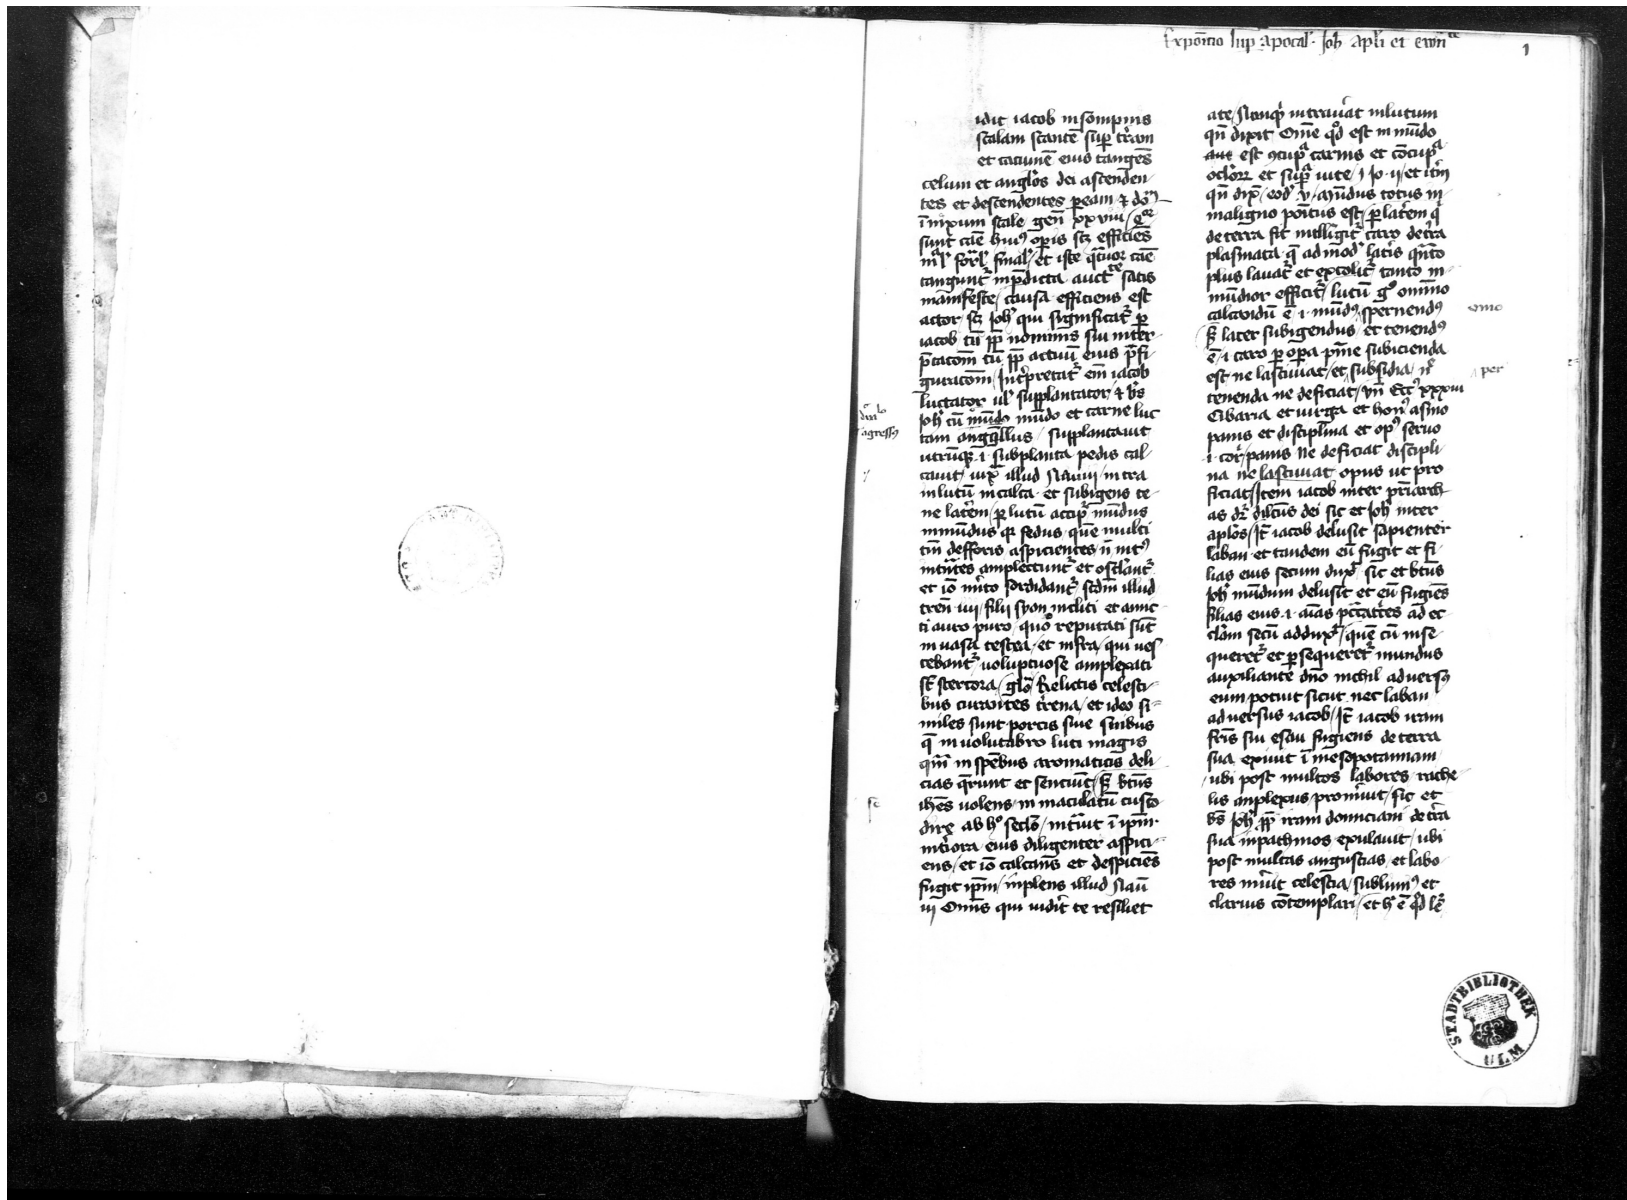 Expōicio sup apocal. Joh apli et ewāte
1
idit iacob in sompnis
scalam stantē sup trām
et cacumē eius tangēs
celum et anglōs dei ascenden
tes et descendentes p eam & dōm
īnixum scale gen xxviii
sunt cāe huiꝰ opis scz efficiēs
mal formal final et iste qtuor cāe
tangunt in p̄dicta auctte satis
manifeste / causa efficiens est
actor scz Joh qui significat p
iacob tū pp nominis sui inter
p̄tacōm tū pp actuū eius p̄fi
guracōm / Intpretat em iacob
luctator ul supplantator & bs
Joh cū mūdo et carne luc
tam aggressus supplantauit
utrūqꝫ .i. sub planta pedis cal
cauit / iux illud Naū iii intra
in lutū in calca et subigens te
ne latem / p lutū accip mūdus
inmūdus qꝫ fedus quē multi
tm defforis aspicientes n̄ intꝰ
intūtes amplectunt et osclānt
et iō mito sordidant scdm illud
tren iiii / filii syon incliti et amic
ti auro puro / quō reputati sūt
in uasa testea / et infra / qui ues
cebant uoluptuose amplexati
st stercora / glō Relictis celesti
bus curantes trena / et ideo si
miles sunt porcis siue suibus
q in uolutabro luti magis
qm in spēbus aromaticis deli
cias qrunt et senciūt / s btūs
ihēs uolens inmaculatū custo
dire ab hº seclo / intuit ī ipm
intiora eius diligenter aspici
ens / et iō calcans et despiciēs
fugit ipm / inplens illud Naū
iij Omis qui uidit te resiliet
a te / Nonqͥ intrauāt in lutum
qn dixit Ome qd est in mūdo
aut est ꝯcupa carnis et cōcupa
oclorꝝ et supa uite / 1 Jo ij / et itm
qn dix eod v / Mūdus totus in
maligno poītus est / p latem q
de terra fit intelligit caro de tra
plasmata / q ad mod latis qnto
plus lauat et excolit tanto in
mūdior efficit / lutū gº omnino
calcandū ē .i. mūdꝰ spernendꝰ
s later subigendus et tenendꝰ
ē .i. caro p opa pnīe subicienda
est ne lasciuiat / et subsidia n
tenenda ne deficiat / vn Eccꝰ xxxiii
Cibaria et uirga et honꝰ asino
panis et disciplina et opꝰ seruo
.i. cor / panis ne deficiat discipli
na ne lasciuiat opus ut pro
ficiat / Item iacob inter priarch
as dr dilcūs dei sic et Joh inter
aplōs / It iacob delusit sapienter
laban et tandem eū fugit et fi
lias eius secum dux sic et btūs
Joh mūdum delusit et eū fugiēs
filias eius .i. aīas pctātces ad ec
clām secū addux / quē cū inse
queret et psequeret mundus
auxiliante dno nichil aduersꝰ
eum potuit sicut nec laban
aduersus iacob / It iacob iram
fris sui esau fugiens de terra
sua exiuit ī mesopotamiam
ubi post multos labores rache
lis amplexus promuit / sic et
bs Joh pp iram domiciani de tra
sua in pathmos exulauit / ubi
post multas angustias et labo
res muit celestia / sublimiꝰ et
clarius cōtemplari / et h ē qd
aggressꝰ
omo
per
STADTBIBLIOTHEK
ULM